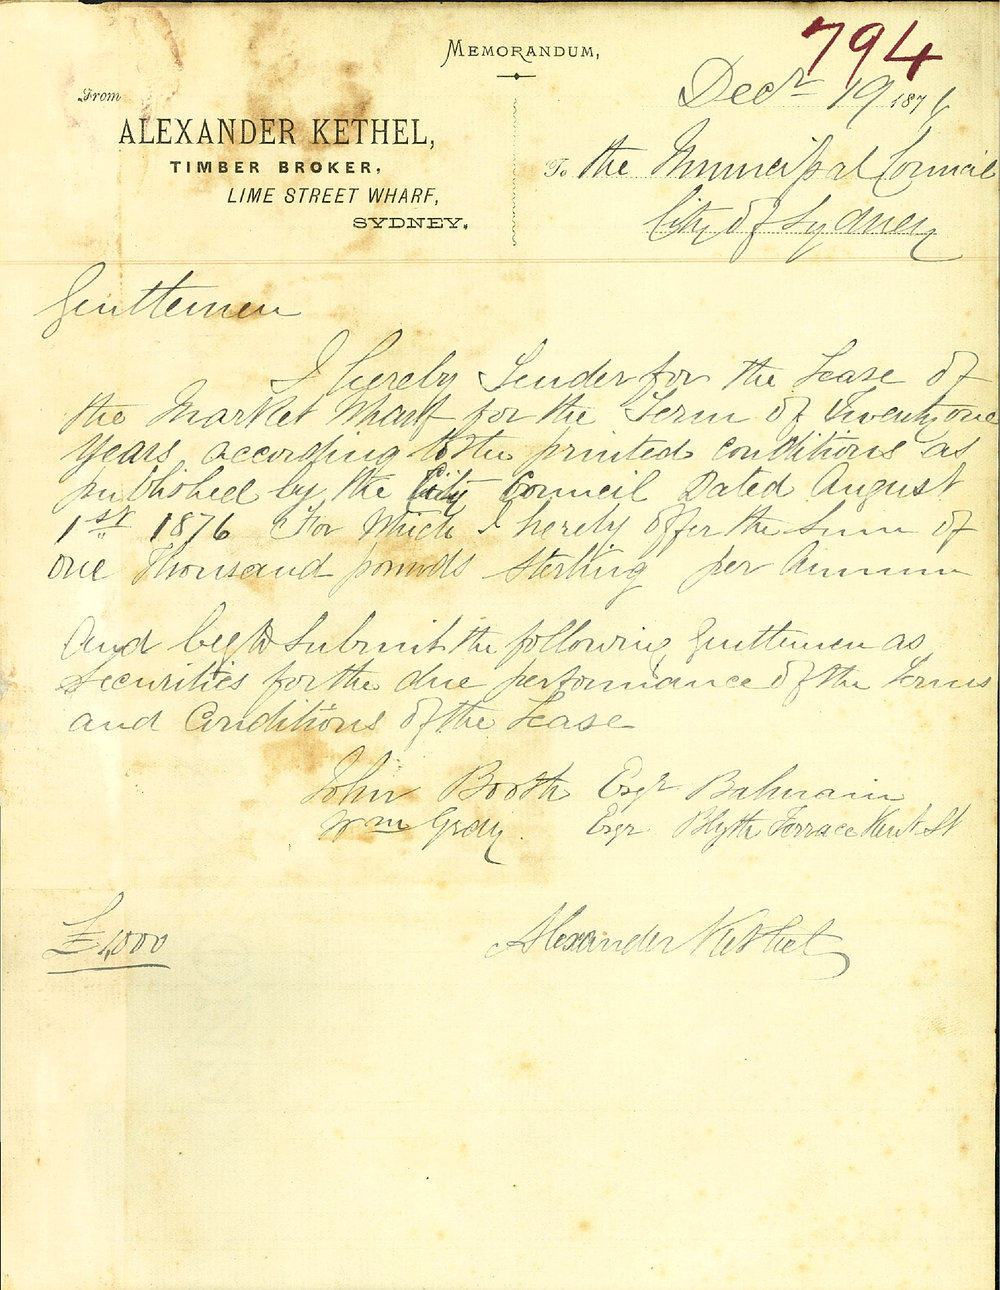 794
MEMORANDUM,
Decr 19 1876
From
ALEXANDER KETHEL,
TIMBER BROKER,
LIME STREET WHARF,
SYDNEY.
To the Municipal Council
City of Sydney
Gentlemen
I hereby Tender for the Lease of
the Market Wharf for the Term of Twenty one
years according to the printed conditions as
published by the City Council Dated August
1st 1876 For Which I hereby offer the Sum of
One Thousand pounds Sterling per Annum
And beg to Submit the following Gentlemen as
Securities for the due performance of the Terms
and Conditions of the Lease
John Booth Esqr Balmain
Wm Gray Esqr Blyth Terrace Kent St
£1,000
Alexander Kethel